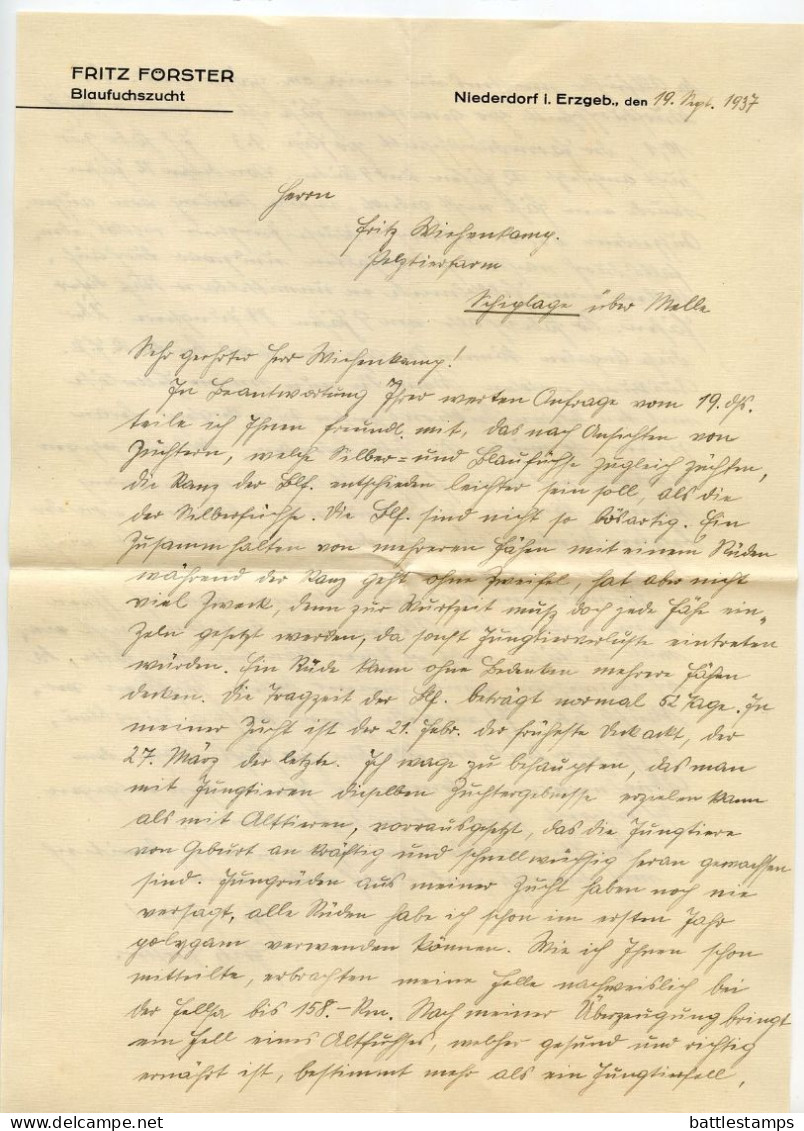 FRITZ FÖRSTER
Blaufuchszucht
Niederdorf i. Erzgeb., den 19. Sept. 1937
Herrn
Fritz Wiehenkamp.
Pelztierfarm
Schiplage über Melle
Sehr geehrter Herr Wiehenkamp!
In Beantwortung Ihrer werten Anfrage vom 19. ds.
teile ich Ihnen freundl. mit, das nach Ansichten von
Züchtern, welche Silber= und Blaufüchse zugleich züchten,
die Ranz der Blf. entschieden leichter sein soll, als die
der Silberfüchse. Die Blf. sind nicht so bösartig. Ein
Zusammhalten von mehreren Fähen mit einem Rüden
während der Ranz geht ohne Zweifel, hat aber nicht
viel Zweck, denn zur Wurfzeit muß doch jede Fähe ein„
zeln gesetzt werden, da sonst Jungtierverluste eintreten
würden. Ein Rüde kann ohne Bedenken mehrere Fähen
decken. Die Tragzeit der Blf. beträgt normal 52 Tage. In
meiner Zucht ist der 21. Febr. der früheste Deckackt, der
27. März der letzte. Ich wage zu behaupten, das man
mit Jungtieren dieselben Zuchtergebnisse erzielen kann
als mit Alttieren, vorrausgesetzt, das die Jungtiere
von Geburt an kräftig und schnellwüchsig heran gewachsen
sind. Jungrüden aus meiner Zucht haben noch nie
versagt, alle Rüden habe ich schon im ersten Jahr
polygam verwenden können. Wie ich Ihnen schon
mitteilte, erbrachten meine Felle nachweislich bei
der Fellha bis 158.- Rm. Nach meiner Überzeugung bringt
ein Fell eines Altfuchses, welcher gesund und richtig
ernährt ist, bestimmt mehr als ein Jungtierfell,
www.delcampe.net
battlestamps